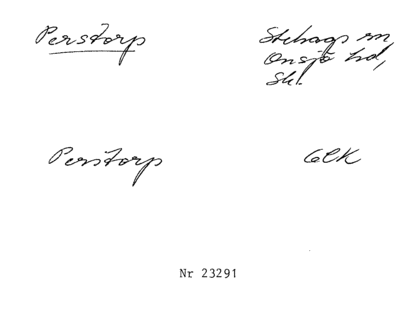 Perstorp
Stehags sn
Onsjö hd,
Sk.
Perstorp
GEK
Nr 23291